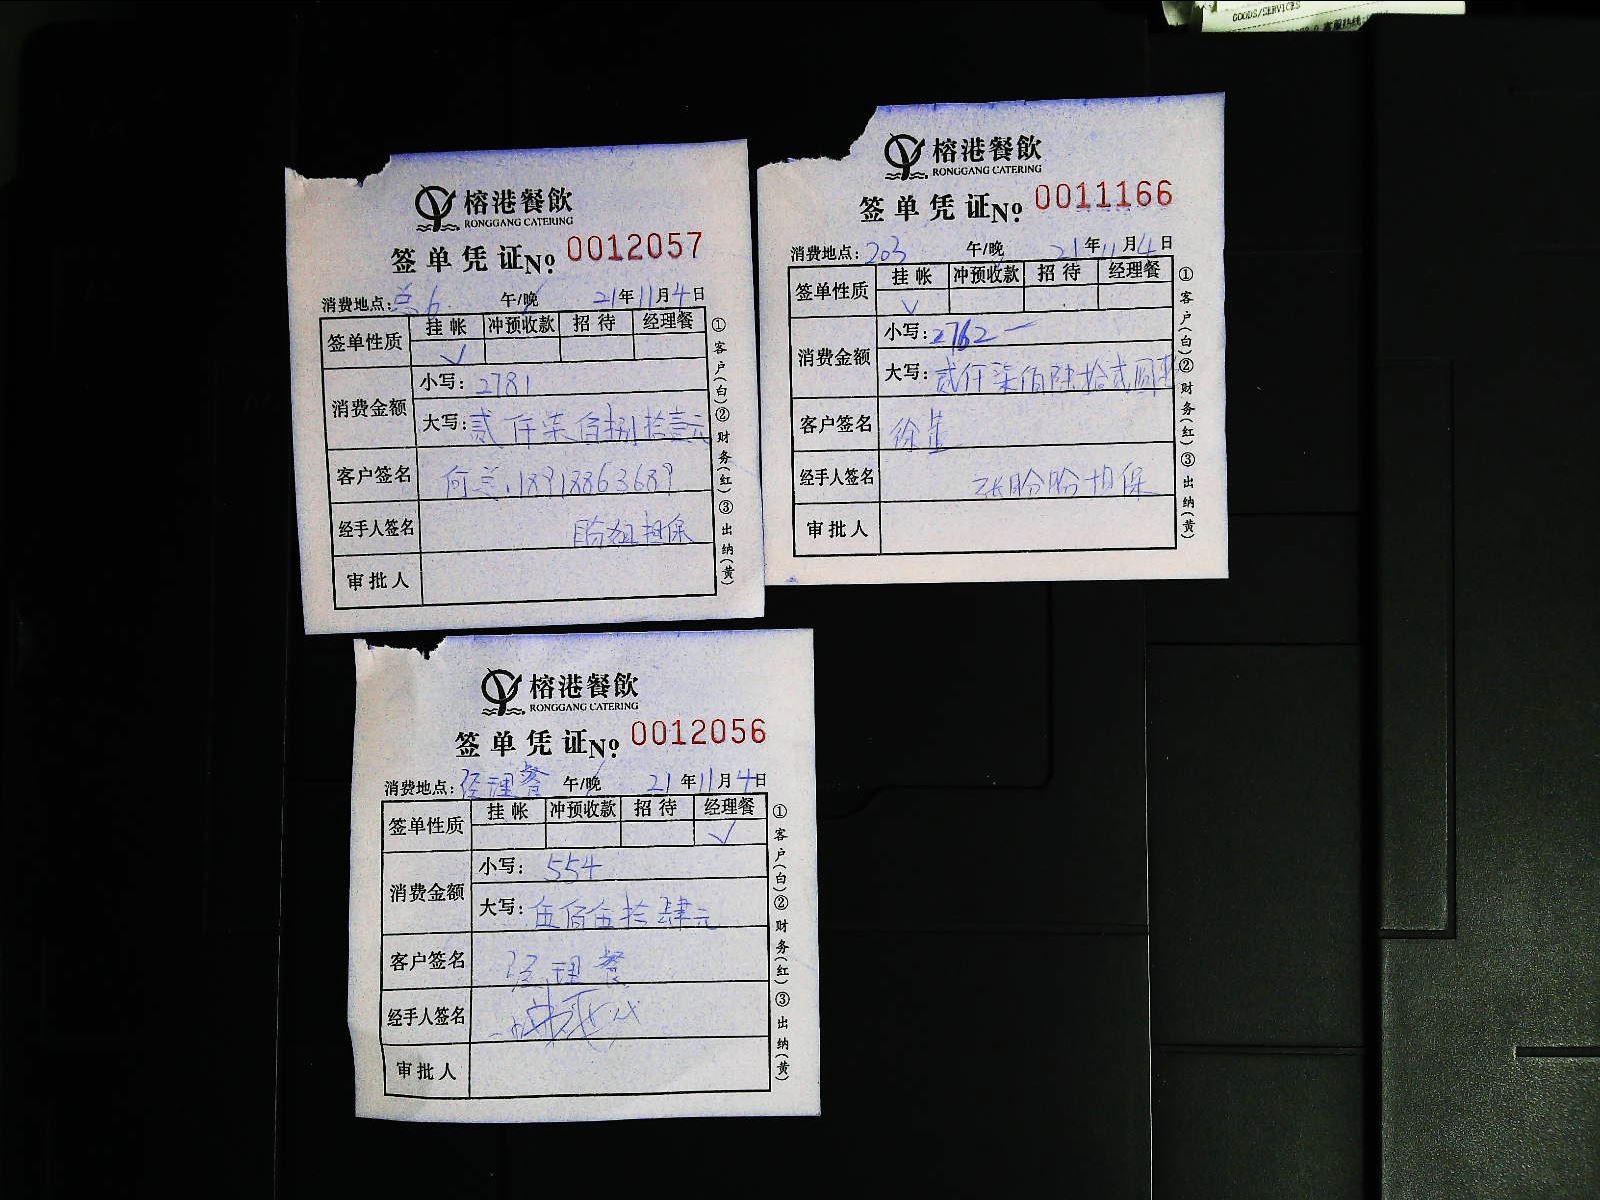 GOODS/SERVICES
榕港餐飲
RONGGANG CATERING
签单凭证No. 0012057
消费地点: 午/晚 21年11月4日
签单性质 挂帐 冲预收款 招待 经理餐
✓
消费金额 小写: 2781
大写: 贰仟柒佰捌拾壹元
客户签名
经手人签名 担保
审批人
①客户(白)②财务(红)③出纳(黄)
榕港餐飲
RONGGANG CATERING
签单凭证No. 0011166
消费地点: 203 午/晚 21年11月4日
签单性质 挂帐 冲预收款 招待 经理餐
✓
消费金额 小写: 2762
大写: 贰仟柒佰陆拾贰圆
客户签名 徐
经手人签名 张盼盼担保
审批人
①客户(白)②财务(红)③出纳(黄)
榕港餐飲
RONGGANG CATERING
签单凭证No. 0012056
消费地点: 经理餐 午/晚 21年11月4日
签单性质 挂帐 冲预收款 招待 经理餐
✓
消费金额 小写: 554
大写: 伍佰伍拾肆元
客户签名 经理餐
经手人签名
审批人
①客户(白)②财务(红)③出纳(黄)